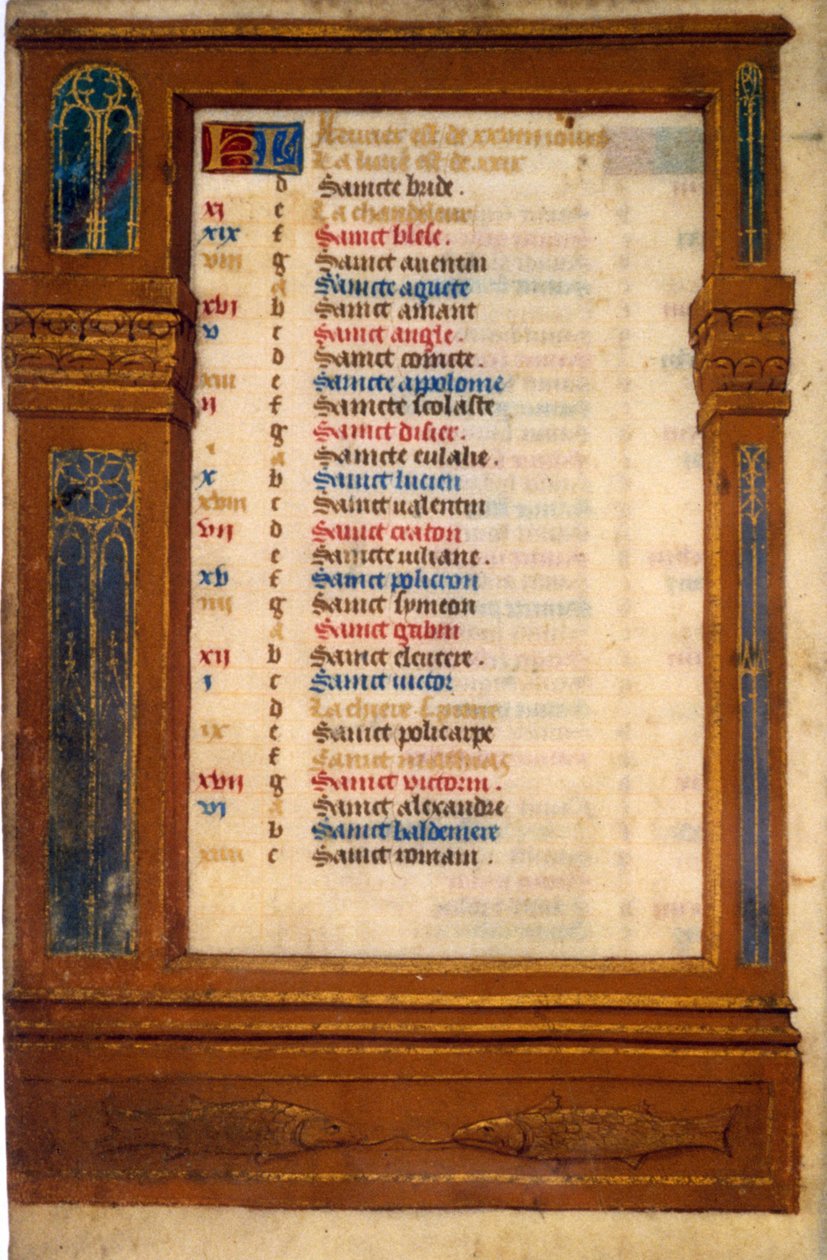 KL Feurier est de xxviii iours
La lune est de xxix
d Sancte bride .
xj e La chandeleur
xix f Sainct blese .
viii g Sainct auentin
a Saincte aguete
xvj b Sainct amant
v c Sainct augle .
d Sainct comcte .
xiii e Saincte appolonie
ij f Saincte scolaste
g Sainct disier .
a Saincte eulalie .
x b Sainct lucien
xviii c Sainct ualentin
vij d Sainct craton
e Saincte iuliane .
xv f Sainct policron
iiij g Sainct symeon
a Sainct gabin
xij b Sainct eleutere .
j c Sainct uictor
d La chiere
ix e Sainct policarpe
f Sainct mathias
xvij g Sainct victorin .
vj a Sainct alexandre
b Sainct baldemere
xiiii c Sainct romain .